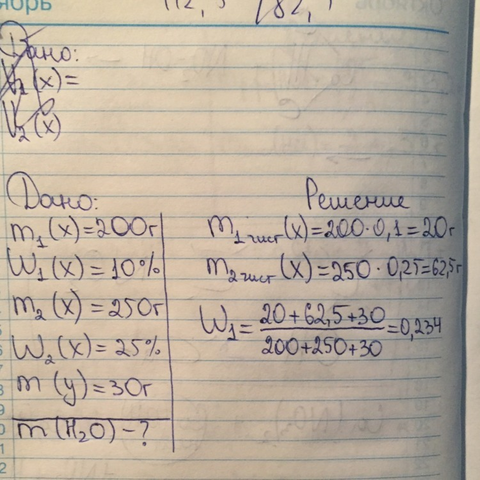 Дано:
V₁(x)=
V₂(x)
Дано:
m₁(x)=200г
W₁(x)=10%
m₂(x)=250г
W₂(x)=25%
m(y)=30г
m(H₂O)-?
Решение
m₁чист(x)=200·0,1=20г
m₂чист(x)=250·0,25=62,5г
W₁= 20+62,5+30 / 200+250+30 =0,234